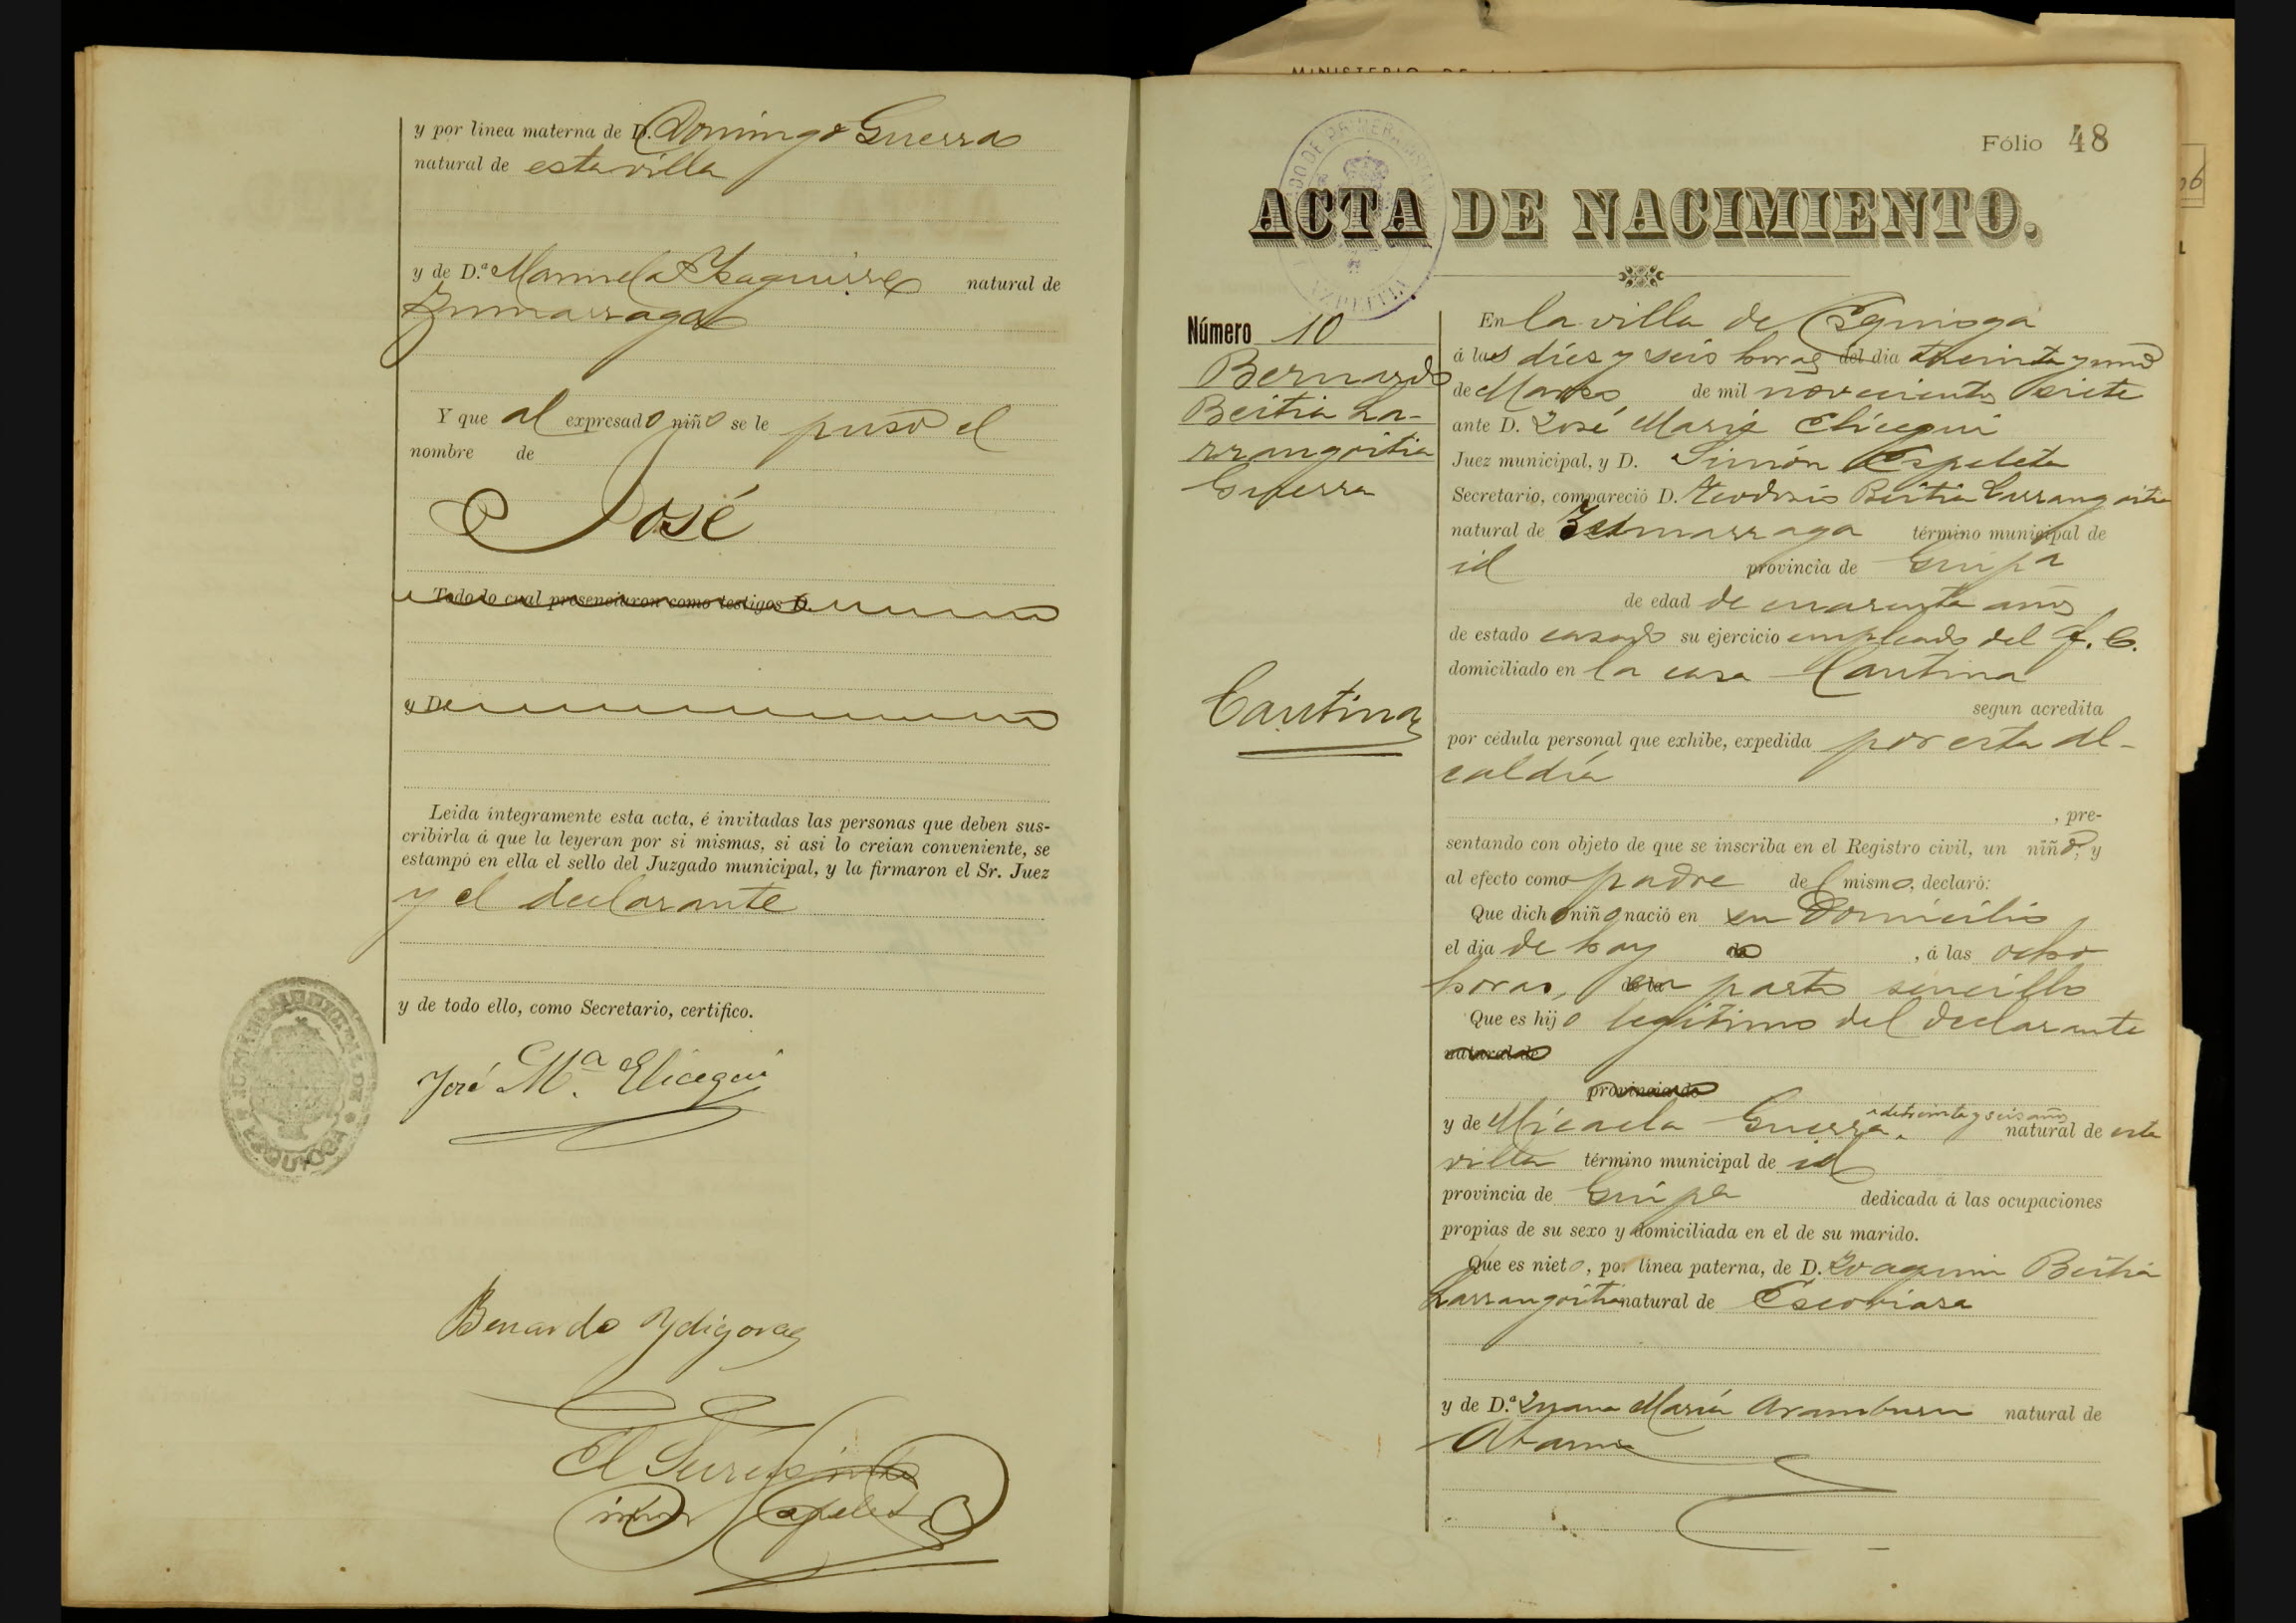 y por linea materna de D. Domingo Guerra
natural de esta villa
y de D.ª Manuela Ysaguirre natural de
Zumarraga
Y que al expresado niño se le puso el
nombre de
José
Todo lo cual presenciaron como testigos D.
y D.
Leida íntegramente esta acta, é invitadas las personas que deben sus-
cribirla á que la leyeran por si mismas, si asi lo creian conveniente, se
estampó en ella el sello del Juzgado municipal, y la firmaron el Sr. Juez
y el declarante
y de todo ello, como Secretario, certifico.
José M.ª Elicegui
Bernardo Ydigoras
El Secretario
Simon Espeleta
MINISTERIO DE
Fólio 48
ACTA DE NACIMIENTO.
Número 10
Bernardo
Beitia La-
rrangoitia
Guerra
Cantina
En la villa de Ezquioga
á las diez y seis horas del dia treinta y uno
de Marzo de mil novecientos siete
ante D. José María Elicegui
Juez municipal, y D. Simón Espeleta
Secretario, compareció D. Teodosio Beitia Larrangoitia
natural de Zumarraga término municipal de
id provincia de Guipa
de edad de cuarenta años
de estado casado su ejercicio empleado del f. C.
domiciliado en la casa Cantina
segun acredita
por cédula personal que exhibe, expedida por esta Al-
caldía
, pre-
sentando con objeto de que se inscriba en el Registro civil, un niño, y
al efecto como padre del mismo, declaró:
Que dicho niño nació en su domicilio
el dia de hoy de , á las ocho
horas, de la parto sencillo
Que es hijo legítimo del declarante
natural de
provincia de
y de Micaela Guerra, de treinta y seis años natural de esta
villa término municipal de id
provincia de Guipa dedicada á las ocupaciones
propias de su sexo y domiciliada en el de su marido.
Que es nieto, por linea paterna, de D. Joaquin Beitia
Larrangoitia natural de Escoriaza
y de D.ª Juana María Aramburu natural de